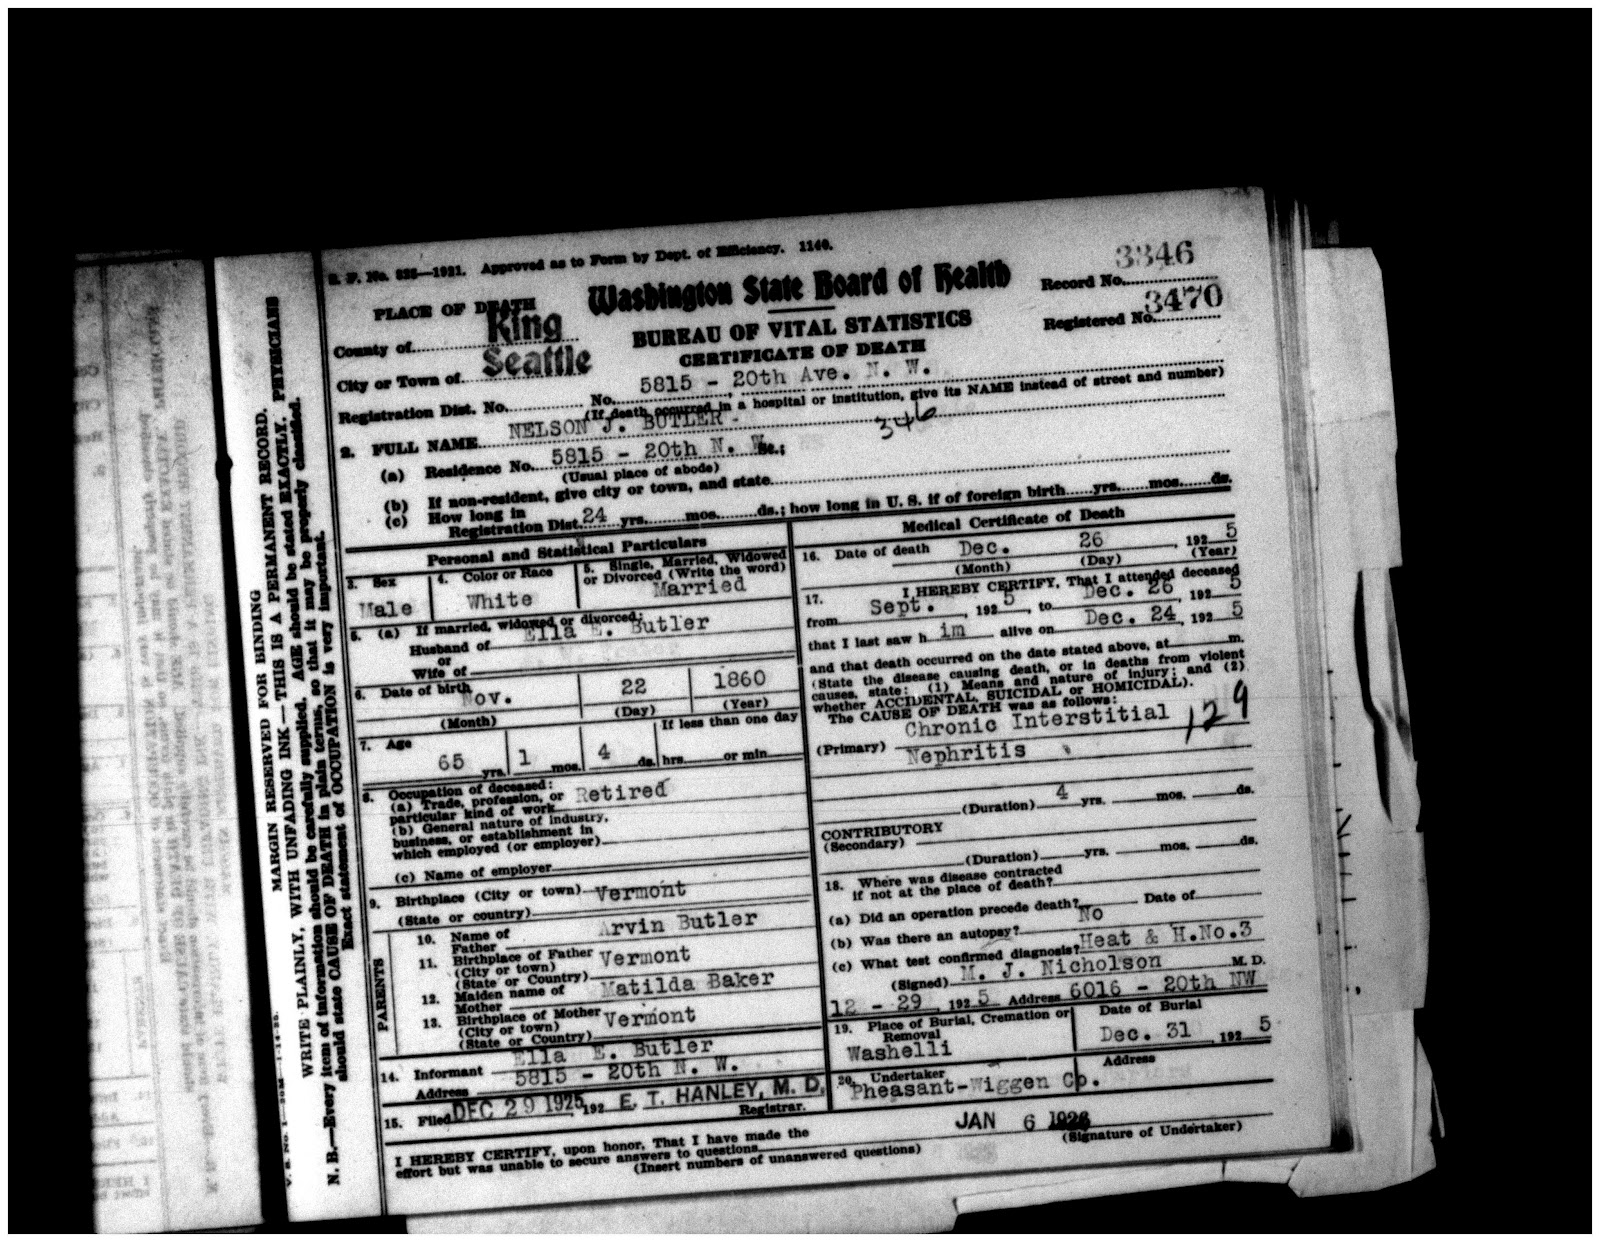 S. F. No. 826—1921. Approved as to Form by Dept. of Efficiency. 1140.
3346
Record No.
3470
Registered No.
PLACE OF DEATH
Washington State Board of Health
BUREAU OF VITAL STATISTICS
CERTIFICATE OF DEATH
County of King
City or Town of Seattle
Registration Dist. No. No. 5815 - 20th Ave. N. W.
(If death occurred in a hospital or institution, give its NAME instead of street and number)
2. FULL NAME NELSON J. BUTLER - 346
(a) Residence No. 5815 - 20th N. W. St.;
(Usual place of abode)
(b) If non-resident, give city or town, and state
(c) How long in
Registration Dist. 24 yrs. mos. ds.; how long in U. S. if of foreign birth yrs. mos. ds.
Personal and Statistical Particulars
3. Sex
Male
4. Color or Race
White
5. Single, Married, Widowed
or Divorced (Write the word)
Married
5. (a) If married, widowed or divorced:
Husband of Ella E. Butler
or
Wife of
6. Date of birth
Nov. 22 1860
(Month) (Day) (Year)
7. Age
65 yrs. 1 mos. 4 ds.
If less than one day
hrs. or min.
8. Occupation of deceased:
(a) Trade, profession, or
particular kind of work Retired
(b) General nature of industry,
business, or establishment in
which employed (or employer)
(c) Name of employer
9. Birthplace (City or town) Vermont
(State or country)
PARENTS
10. Name of
Father Arvin Butler
11. Birthplace of Father
(City or town) Vermont
(State or Country)
12. Maiden name of
Mother Matilda Baker
13. Birthplace of Mother
(City or town) Vermont
(State or Country)
14. Informant Ella E. Butler
Address 5815 - 20th N. W.
15. Filed DEC 29 1925, 192 E. T. HANLEY, M. D.
Registrar.
Medical Certificate of Death
16. Date of death Dec. 26, 1925
(Month) (Day) (Year)
17. I HEREBY CERTIFY, That I attended deceased
from Sept., 1925, to Dec. 26, 1925
that I last saw him alive on Dec. 24, 1925
and that death occurred on the date stated above, at m.
(State the disease causing death, or in deaths from violent
causes, state: (1) Means and nature of injury; and (2)
whether ACCIDENTAL, SUICIDAL or HOMICIDAL).
The CAUSE OF DEATH was as follows:
Chronic Interstitial
129
(Primary) Nephritis
(Duration) 4 yrs. mos. ds.
CONTRIBUTORY
(Secondary)
(Duration) yrs. mos. ds.
18. Where was disease contracted
if not at the place of death?
(a) Did an operation precede death? No Date of
(b) Was there an autopsy?
(c) What test confirmed diagnosis? Heat & H.No.3
(Signed) M. J. Nicholson M. D.
12 - 29, 1925 Address 6016 - 20th NW
19. Place of Burial, Cremation or
Removal
Washelli
Date of Burial
Dec. 31, 1925
20. Undertaker
Pheasant-Wiggen Co.
Address
I HEREBY CERTIFY, upon honor, That I have made the
effort but was unable to secure answers to questions
(Insert numbers of unanswered questions)
JAN 6 1926
(Signature of Undertaker)
MARGIN RESERVED FOR BINDING
WRITE PLAINLY, WITH UNFADING INK—THIS IS A PERMANENT RECORD.
N. B.—Every item of information should be carefully supplied. AGE should be stated EXACTLY. PHYSICIANS
should state CAUSE OF DEATH in plain terms, so that it may be properly classified.
Exact statement of OCCUPATION is very important.